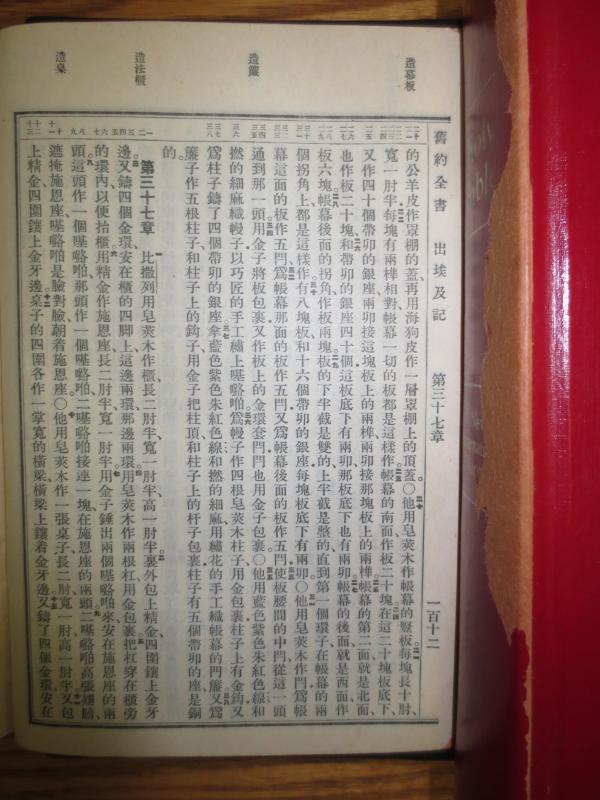 造幕板
造簾
造法櫃
造桌
舊約全書 出埃及記 第三十七章 一百十二
的公羊皮作罩棚的蓋再用海狗皮作一層罩棚上的頂蓋〇他用皂莢木作帳幕的豎板每塊長十肘、
寬一肘半每塊有兩榫相對帳幕一切的板都是這樣作帳幕的南面作板二十塊在這二十塊板底下、
又作四十個帶卯的銀座兩卯接這塊板上的兩榫兩卯接那塊板上的兩榫帳幕的第二面就是北面、
也作板二十塊和帶卯的銀座四十個這板底下有兩卯那板底下也有兩卯帳幕的後面就是西面作
板六塊帳幕後面的拐角作板兩塊板的下半截是雙的上半截是整的直到第一個環子在帳幕的兩
個拐角上都是這樣作有八塊板和十六個帶卯的銀座每塊板底下有兩卯〇他用皂莢木作閂爲帳
幕這面的板作五閂爲帳幕那面的板作五閂又爲帳幕後面的板作五閂使板腰間的中閂從這一頭
通到那一頭用金子將板包裹又作板上的金環套閂閂也用金子包裹〇他用藍色紫色朱紅色線和
撚的細麻織幔子以巧匠的手工繡上𠼻𡀔㗎爲幔子作四根皂莢木柱子用金包裹柱子上有金鉤又
爲柱子鑄了四個帶卯的銀座拿藍色紫色朱紅色線和撚的細麻用繡花的手工織帳幕的門簾又爲
簾子作五根柱子和柱子上的鉤子用金子把柱頂和柱子上的杆子包裹柱子有五個帶卯的座是銅
的。
第三十七章 比撒列用皂莢木作櫃長二肘半寬一肘半高一肘半裏外包上精金四圍鑲上金牙
邊又鑄四個金環安在櫃的四脚上這邊兩環那邊兩環用皂莢木作兩根杠用金包裹把杠穿在櫃旁
的環內以便抬櫃用精金作施恩座長二肘半寬一肘半用金子錘出兩個來安在施恩座的兩
頭這頭作一個那頭作一個二接連一塊在施恩座的兩頭二高張翅膀
遮掩施恩座是臉對臉朝着施恩座〇他用皂莢木作一張桌子長二肘寬一肘高一肘半又包
上精金四圍鑲上金牙邊桌子的四圍各作一掌寬的橫梁橫梁上鑲着金牙邊又鑄了四個金環安在